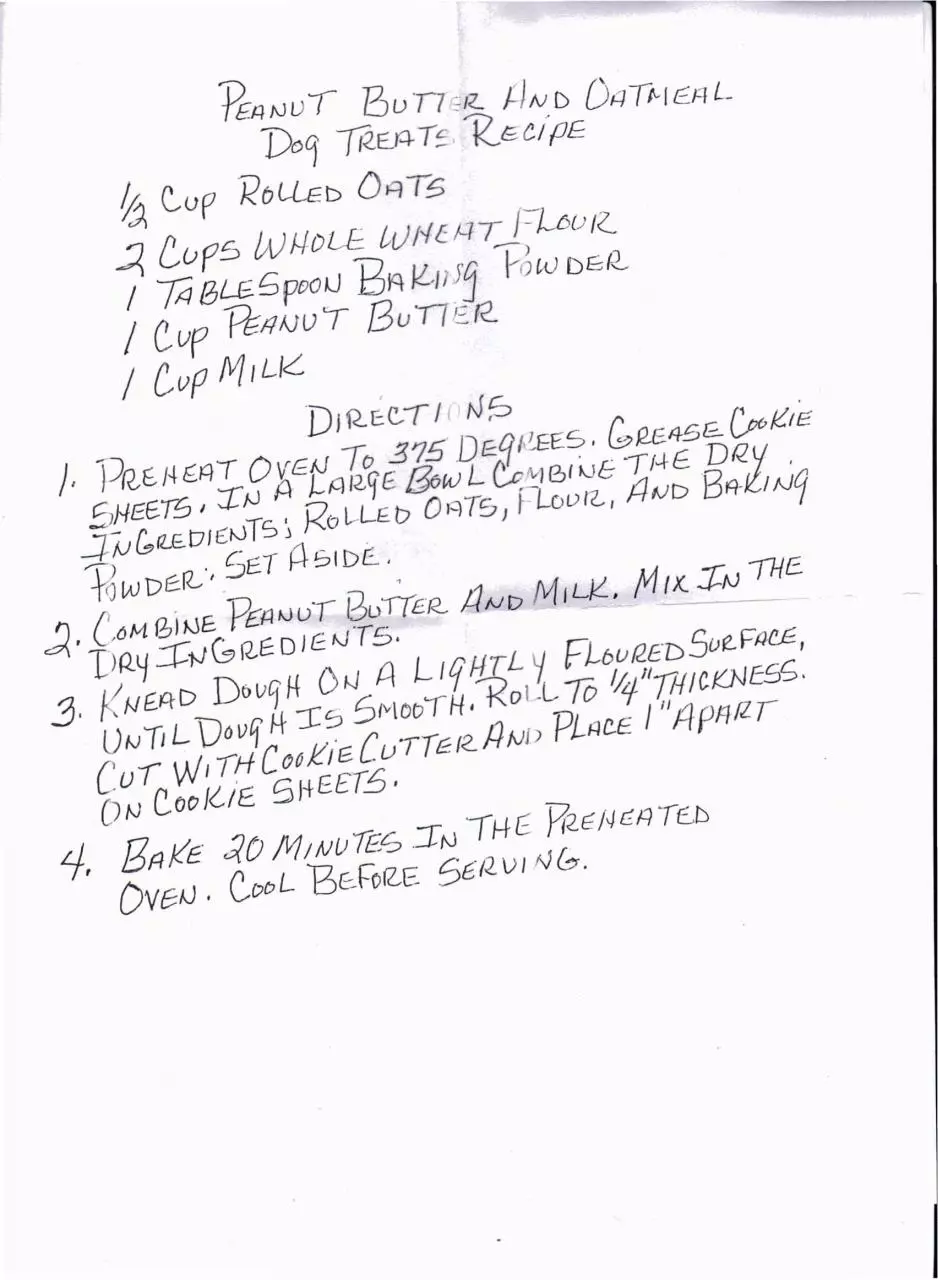 PEANUT BUTTER AND OATMEAL
DOG TREATS RECIPE
1/2 CUP ROLLED OATS
2 CUPS WHOLE WHEAT FLOUR
1 TABLESPOON BAKING POWDER
1 CUP PEANUT BUTTER
1 CUP MILK
DIRECTIONS
1. PREHEAT OVEN TO 375 DEGREES. GREASE COOKIE
SHEETS. IN A LARGE BOWL COMBINE THE DRY
INGREDIENTS; ROLLED OATS, FLOUR, AND BAKING
POWDER; SET ASIDE.
2. COMBINE PEANUT BUTTER AND MILK. MIX IN THE
DRY INGREDIENTS.
3. KNEAD DOUGH ON A LIGHTLY FLOURED SURFACE,
UNTIL DOUGH IS SMOOTH. ROLL TO 1/4" THICKNESS.
CUT WITH COOKIE CUTTER AND PLACE 1" APART
ON COOKIE SHEETS.
4. BAKE 20 MINUTES IN THE PREHEATED
OVEN. COOL BEFORE SERVING.